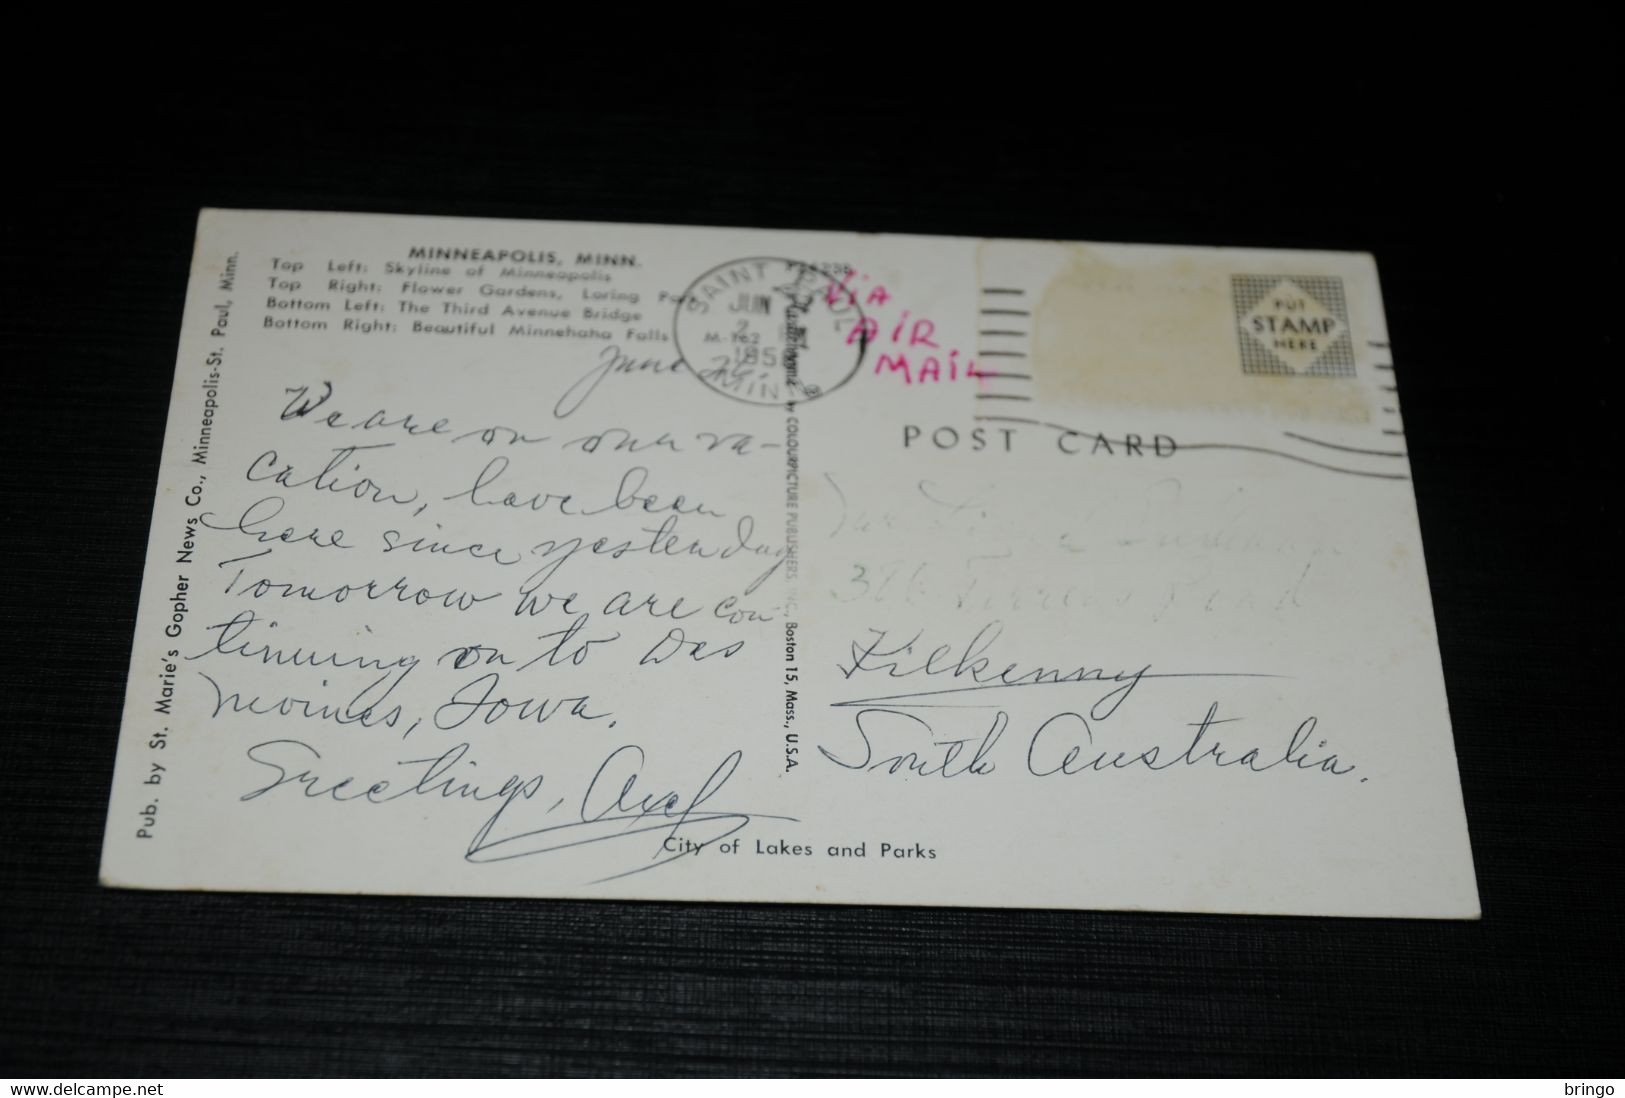 MINNEAPOLIS, MINN.
Top Left: Skyline of Minneapolis
Top Right: Flower Gardens, Loring Park
Bottom Left: The Third Avenue Bridge
Bottom Right: Beautiful Minnehaha Falls
June
We are on our va-
cation, have been
here since yesterday
Tomorrow we are con
tinuing on to Des
Moines, Iowa.
Greetings, Axel
Pub. by St. Marie's Gopher News Co., Minneapolis-St. Paul, Minn.
SAINT PAUL
JUN
2
195
MIN
M-162
Plastichrome ® by COLOURPICTURE PUBLISHERS, INC., Boston 15, Mass., U.S.A.
Via
AiR
MAiL
PUT
STAMP
HERE
POST CARD
Road
Kilkenny
South Australia.
City of Lakes and Parks
www.delcampe.net
bringo